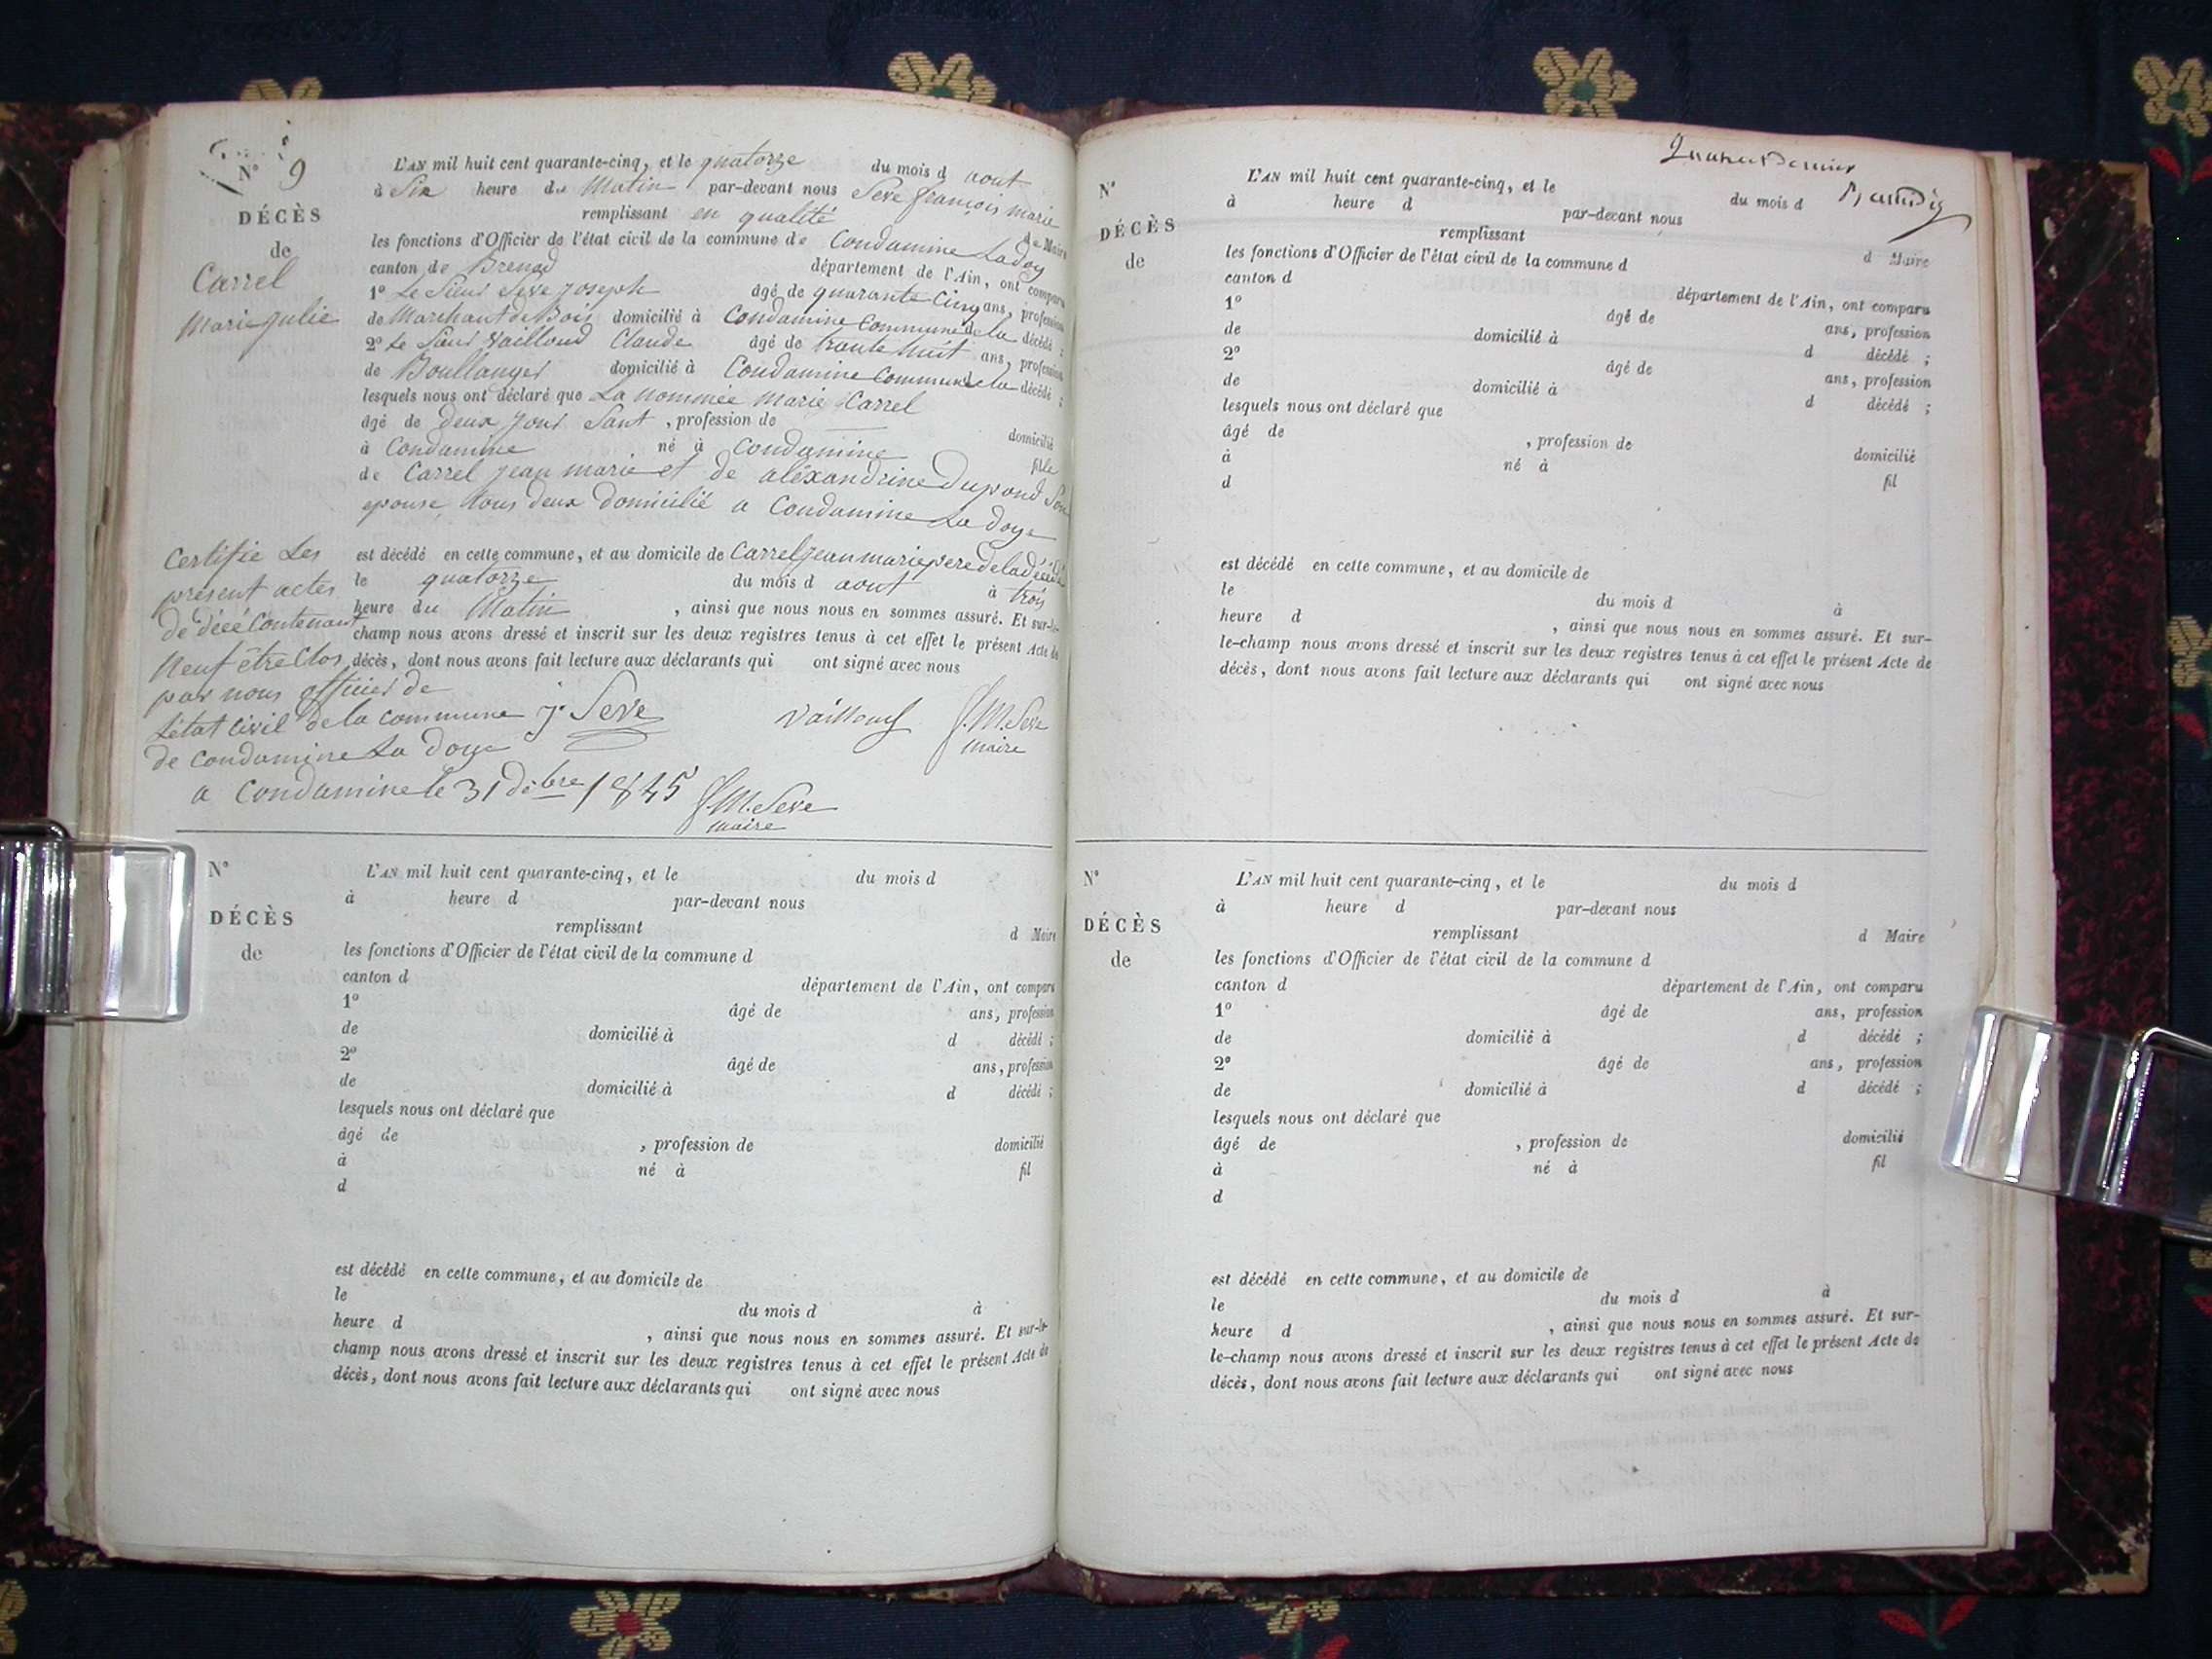 N° 9
DÉCÈS
de
Carrel
Marie Julie
L'AN mil huit cent quarante-cinq, et le quatorze du mois d aout
à Six heure du Matin par-devant nous Seve françois marie
remplissant en qualité de Maire
les fonctions d'Officier de l'état civil de la commune de Condamine La doy
canton de Brenod département de l'Ain, ont comparu
1° Le Sieur Seve Joseph âgé de quarante Cinq ans, profession
de Marchant de Bois domicilié à Condamine Commune de la décédé ;
2° Le Sieur Vailloud Claude âgé de trante huit ans, profession
de Boullanger domicilié à Condamine Commune de la décédé ;
lesquels nous ont déclaré que La nommée Marie Carrel
âgé de deux jour Sant , profession de domicilié
à Condamine né à Condamine fille
de Carrel jean marie et de alexandrine Dupond Son
epouse tous deux Domicilié a Condamine La doye
est décédé en cette commune, et au domicile de Carrel jean marie pere de la décédé
le quatorze du mois d aout à trois
heure du Matin , ainsi que nous nous en sommes assuré. Et sur-le-
champ nous avons dressé et inscrit sur les deux registres tenus à cet effet le présent Acte de
décès, dont nous avons fait lecture aux déclarants qui ont signé avec nous
j. Seve Vailloud f. M. Seve
maire
Certifie Les
present actes
de décé Contenant
Neuf être Clos
par nous officier de
L'état civil de la commune
de Condamine La doye
a Condamine le 31 débre 1845 f. M. Seve
maire
N°
DÉCÈS
de
L'AN mil huit cent quarante-cinq, et le du mois d
à heure d par-devant nous
remplissant d Maire
les fonctions d'Officier de l'état civil de la commune d
canton d département de l'Ain, ont comparu
1° âgé de ans, profession
de domicilié à d décédé ;
2° âgé de ans, profession
de domicilié à d décédé ;
lesquels nous ont déclaré que
âgé de , profession de domicilié
à né à fil
d
est décédé en cette commune, et au domicile de
le du mois d à
heure d , ainsi que nous nous en sommes assuré. Et sur-le-
champ nous avons dressé et inscrit sur les deux registres tenus à cet effet le présent Acte de
décès, dont nous avons fait lecture aux déclarants qui ont signé avec nous
N°
DÉCÈS
de
L'AN mil huit cent quarante-cinq, et le du mois d
à heure d par-devant nous
remplissant d Maire
les fonctions d'Officier de l'état civil de la commune d
canton d département de l'Ain, ont comparu
1° âgé de ans, profession
de domicilié à d décédé ;
2° âgé de ans, profession
de domicilié à d décédé ;
lesquels nous ont déclaré que
âgé de , profession de domicilié
à né à fil
d
est décédé en cette commune, et au domicile de
le du mois d à
heure d , ainsi que nous nous en sommes assuré. Et sur-
le-champ nous avons dressé et inscrit sur les deux registres tenus à cet effet le présent Acte de
décès, dont nous avons fait lecture aux déclarants qui ont signé avec nous
N°
DÉCÈS
de
L'AN mil huit cent quarante-cinq, et le du mois d
à heure d par-devant nous
remplissant d Maire
les fonctions d'Officier de l'état civil de la commune d
canton d département de l'Ain, ont comparu
1° âgé de ans, profession
de domicilié à d décédé ;
2° âgé de ans, profession
de domicilié à d décédé ;
lesquels nous ont déclaré que
âgé de , profession de domicilié
à né à fil
d
est décédé en cette commune, et au domicile de
le du mois d à
heure d , ainsi que nous nous en sommes assuré. Et sur-
le-champ nous avons dressé et inscrit sur les deux registres tenus à cet effet le présent Acte de
décès, dont nous avons fait lecture aux déclarants qui ont signé avec nous